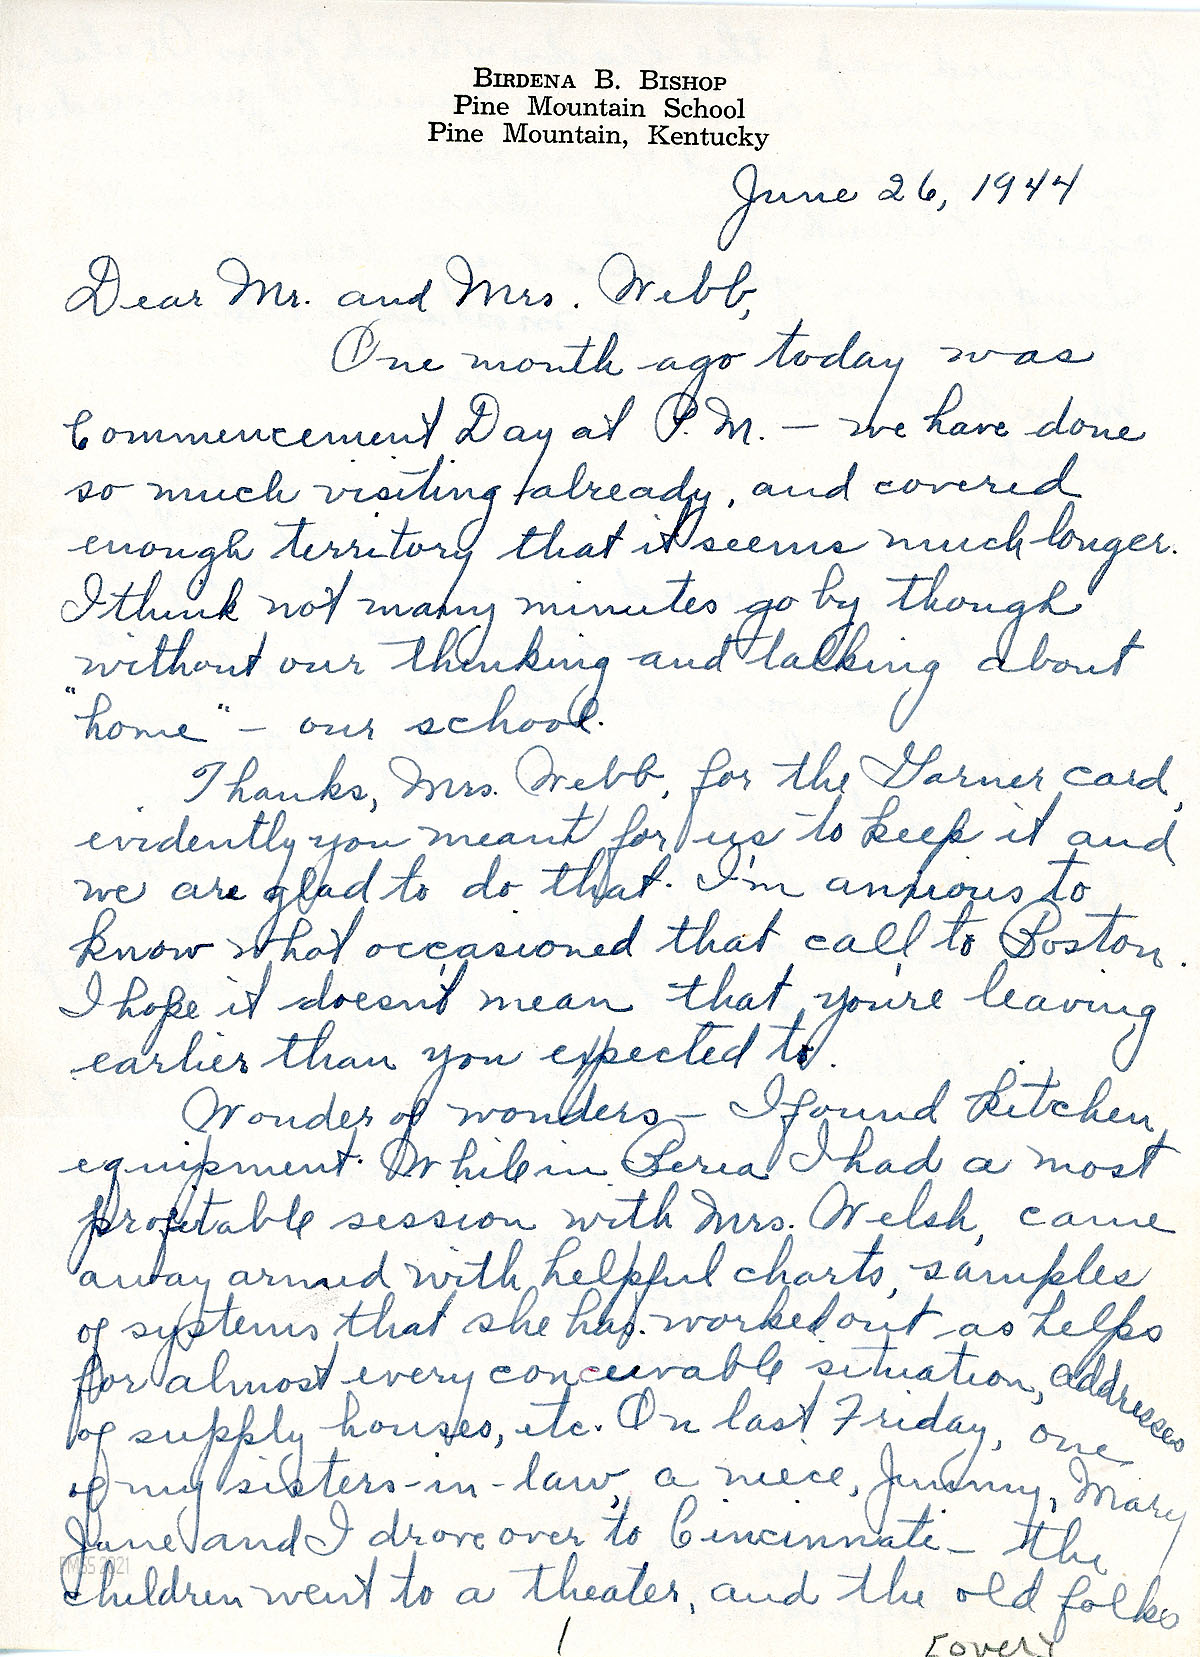 BIRDENA B. BISHOP
Pine Mountain School
Pine Mountain, Kentucky
June 26, 1944
Dear Mr. and Mrs. Webb,
One month ago today was
Commencement Day at P.M. — we have done
so much visiting already, and covered
enough territory that it seems much longer.
I think not many minutes go by though
without our thinking and talking about
"home" — our school.
Thanks, Mrs. Webb, for the Garner card,
evidently you meant for us to keep it and
we are glad to do that. I'm anxious to
know what occasioned that call to Boston.
I hope it doesn't mean that you're leaving
earlier than you expected to.
Wonder of wonders — I found kitchen
equipment. While in Berea I had a most
profitable session with Mrs. Welsh, came
away armed with helpful charts, samples
of systems that she has worked out as helps
for almost every conceivable situation, addresses
of supply houses, etc. On last Friday, one
of my sisters-in-law, a niece, Jimmy, Mary
Jane and I drove over to Cincinnati — the
PMSS 2021
children went to a theater, and the old folks
1
[over]